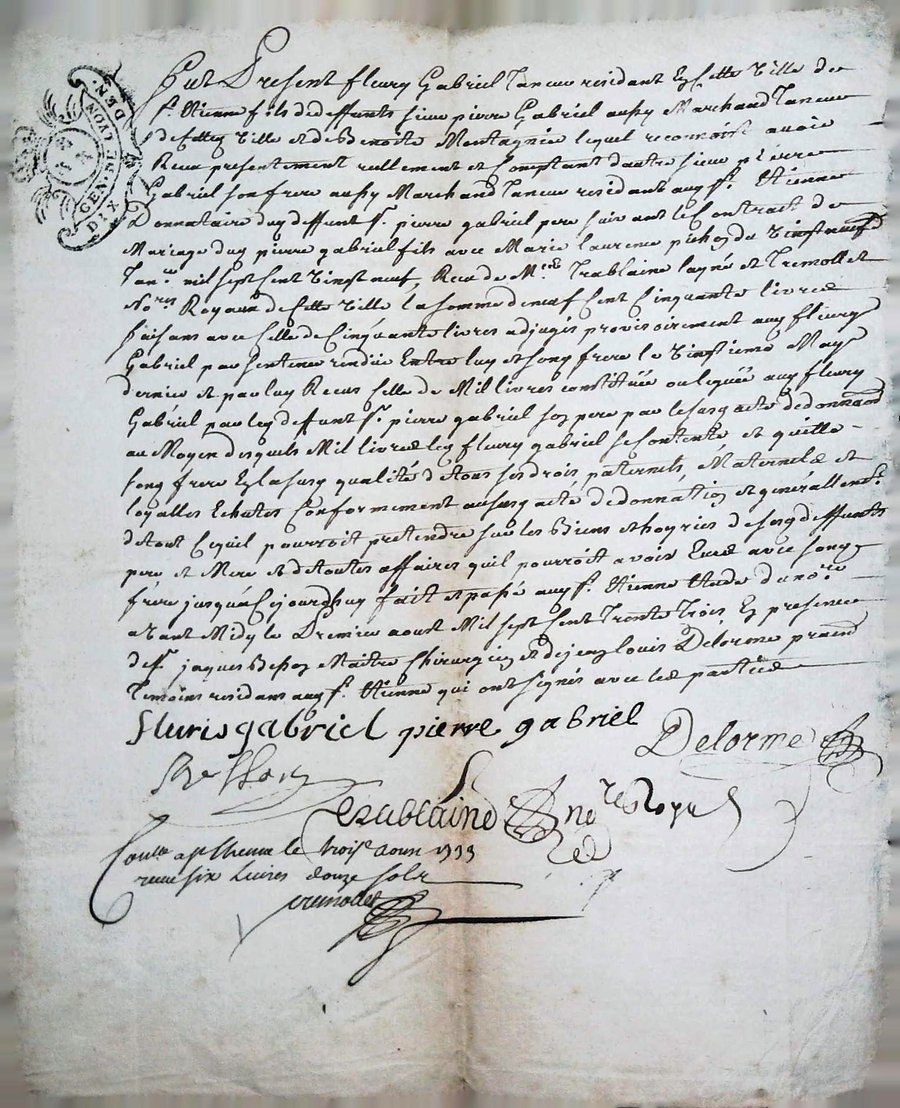 GEN. DE LYON
DIX DEN.
Fut Present fleury Gabriel Taneur residant En Cette Ville de
St. Etienne fils de deffunts sieur pierre Gabriel aussy Marchand Taneur
de Cette Ville et de Benoite Montagnie lequel reconnoist avoir
Receu presentement reellement et Comptant d'autre sieur pierre
Gabriel son frere aussy Marchand Taneur residant aud St. Etienne
Donnataire dud deffunt Sr. pierre gabriel pere suivant le Contrait de
Mariage dud pierre gabriel fils avec Marie laurence pichon du Vingt neuf
Janer. mil sept Cent Vingt neuf, Receu de Mes. Trablaine layné et Tremollet
Nores. Royaux de Cette Ville la somme de neuf Cent Cinquante livres
faisans avec Celle de Cinquante livres adjugés provisoirement aud fleury
Gabriel par sentence rendüe Entre luy et song frere le Vingtieme May
dernier et par luy Receus Celle de Mil livres constituée ou leguée aud fleury
Gabriel par led deffunt Sr. pierre gabriel son pere par le susd acte de donnaon
au Moyen desquels Mil livres led fleury gabriel se Contente et quitte
song frere En la susd qualité de tous ses drois paternels, Maternels et
loyalles Echutes Conformement au susd acte de donnation et generallemt.
de tout Ce quil pourroit pretendre sur les Biens et hoyries de sesd deffunts
pere et Mere et de toutes affaires quil pourroit avoir Eues avec song
frere jusqua Cejourdhuy fait et passé aud St. Etienne Etude du nore.
avant Midy le Premier aoust Mil sept Cent Trente Trois, En presence
de Sr. jaques Besson Maitre Chirurgien et de jean louis Delorme pratn
Temoins residans aud St. Etienne qui ont signés avec les parties
fleuris gabriel pierre gabriel
Delorme
Besson
Trablaine nore Royal
Conllé a St Etienne le trois aoust 1733
receu six Livres douze sols
Tremollet